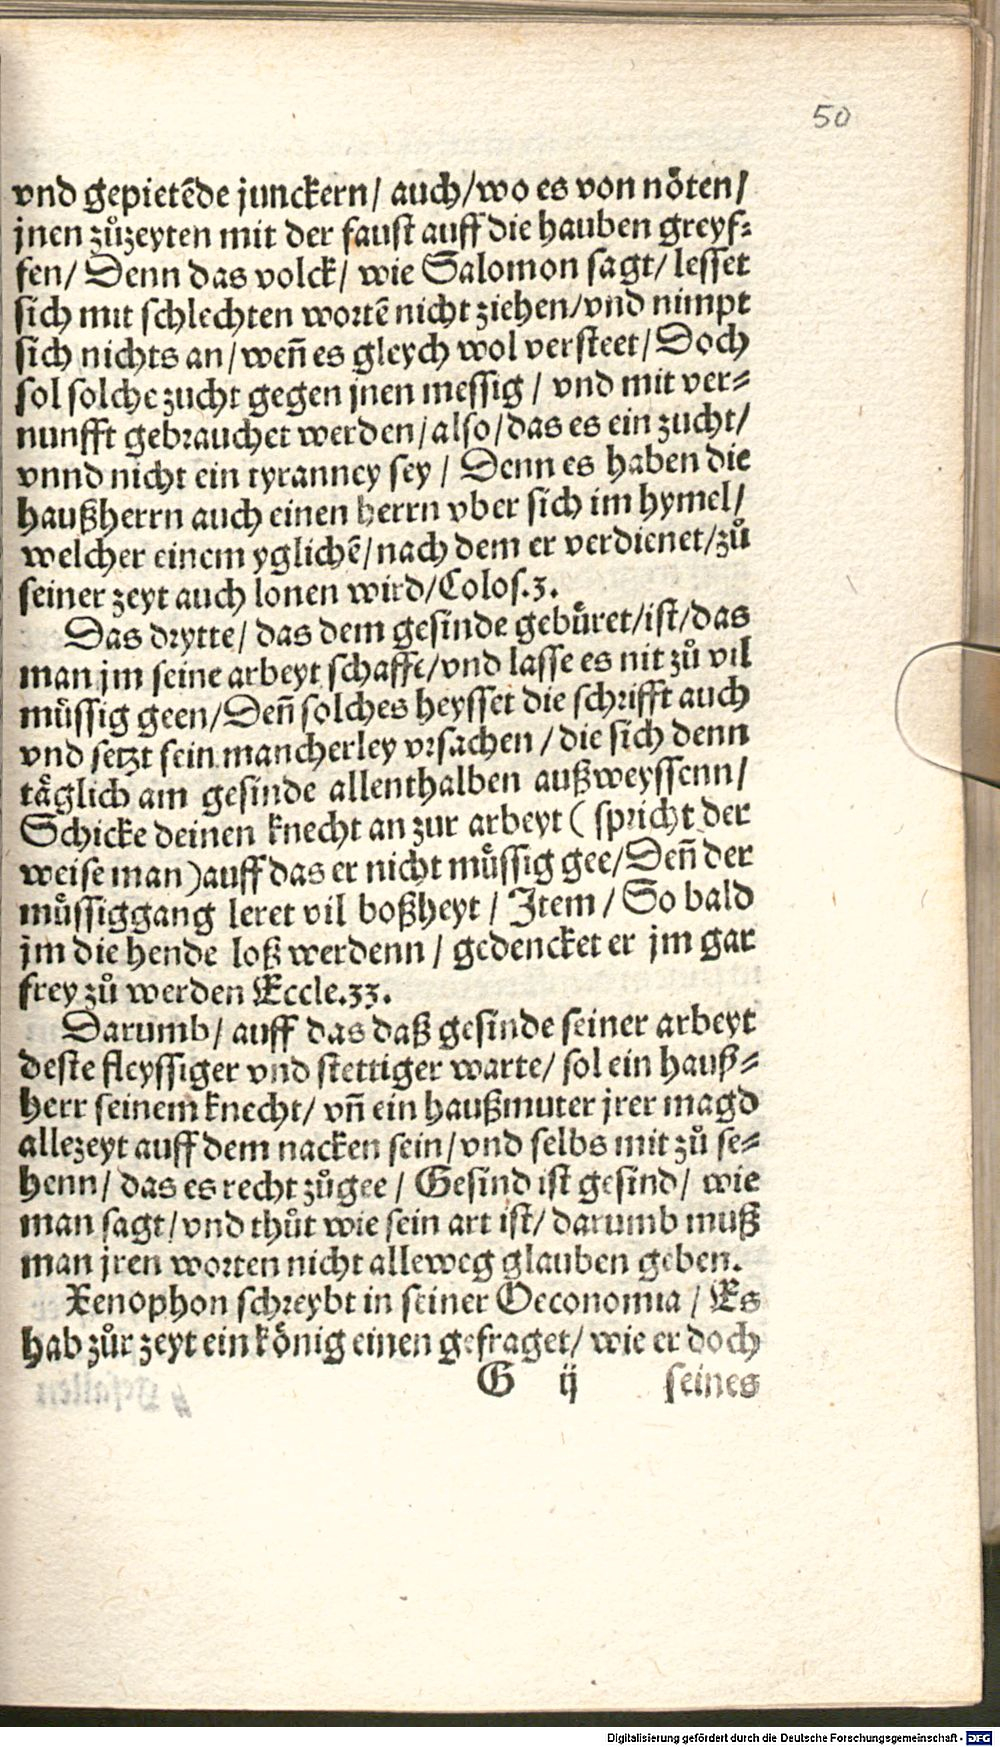 50
vnd gepietēde junckern/ auch/wo es von nöten/
jnen zůzeyten mit der faust auff die hauben greyf-
fen/ Denn das volck/ wie Salomon sagt/ lesset
sich mit schlechten wortē nicht ziehen/vnd nimpt
sich nichts an/ wen̄ es gleych wol versteet/ Doch
sol solche zucht gegen jnen messig / vnd mit ver-
nunfft gebrauchet werden/ also/ das es ein zucht/
vnnd nicht ein tyranney sey / Denn es haben die
haußherrn auch einen herrn vber sich im hymel/
welcher einem yglichē/ nach dem er verdienet/zů
seiner zeyt auch lonen wird/Colos.3.
Das drytte/ das dem gesinde gebüret/ist/das
man jm seine arbeyt schaffe/vnd lasse es nit zů vil
müssig geen/Den̄ solches heysset die schrifft auch
vnd setzt sein mancherley vrsachen / die sich denn
täglich am gesinde allenthalben außweyssenn/
Schicke deinen knecht an zur arbeyt ( spricht der
weise man )auff das er nicht müssig gee/Den̄ der
müssiggang leret vil boßheyt / Item / So bald
jm die hende loß werdenn / gedencket er jm gar
frey zů werden Eccle.33.
Darumb/ auff das daß gesinde seiner arbeyt
deste fleyssiger vnd stettiger warte/ sol ein hauß-
herr seinem knecht/ vn̄ ein haußmuter jrer magd
allezeyt auff dem nacken sein/vnd selbs mit zů se-
henn/ das es recht zůgee / Gesind ist gesind/ wie
man sagt/vnd thůt wie sein art ist/ darumb muß
man jren worten nicht alleweg glauben geben.
Xenophon schreybt in seiner Oeconomia / Es
hab zůr zeyt ein könig einen gefraget/ wie er doch
G ij seines
Digitalisierung gefördert durch die Deutsche Forschungsgemeinschaft - DFG